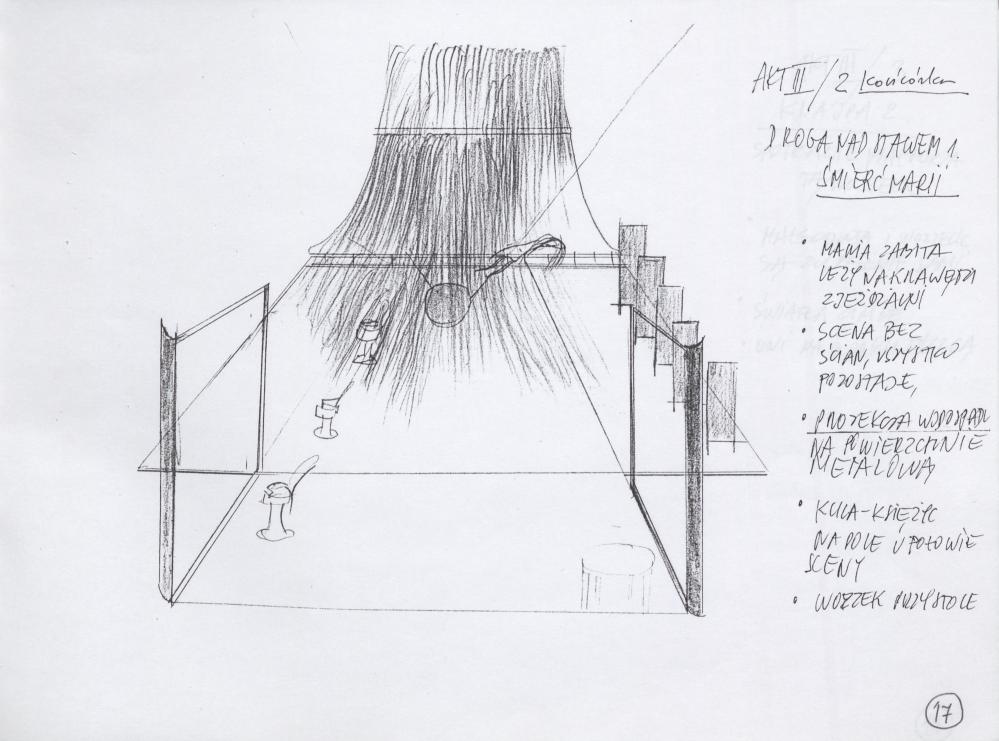 AKT III / 2 końcówka
DROGA NAD STAWEM 1.
ŚMIERĆ MARII
• MARIA ZABITA
LEŻY NA KRAWĘDZI
ZJEŻDŻALNI
• SCENA BEZ
ŚCIAN, WSZYSTKO
POZOSTAJE,
• PROJEKCJA WODOSPADU
NA POWIERZCHNIE
METALOWĄ
• KULA-KSIĘŻYC
NA DOLE W POŁOWIE
SCENY
• WOZZEK PRZY STOLE
17